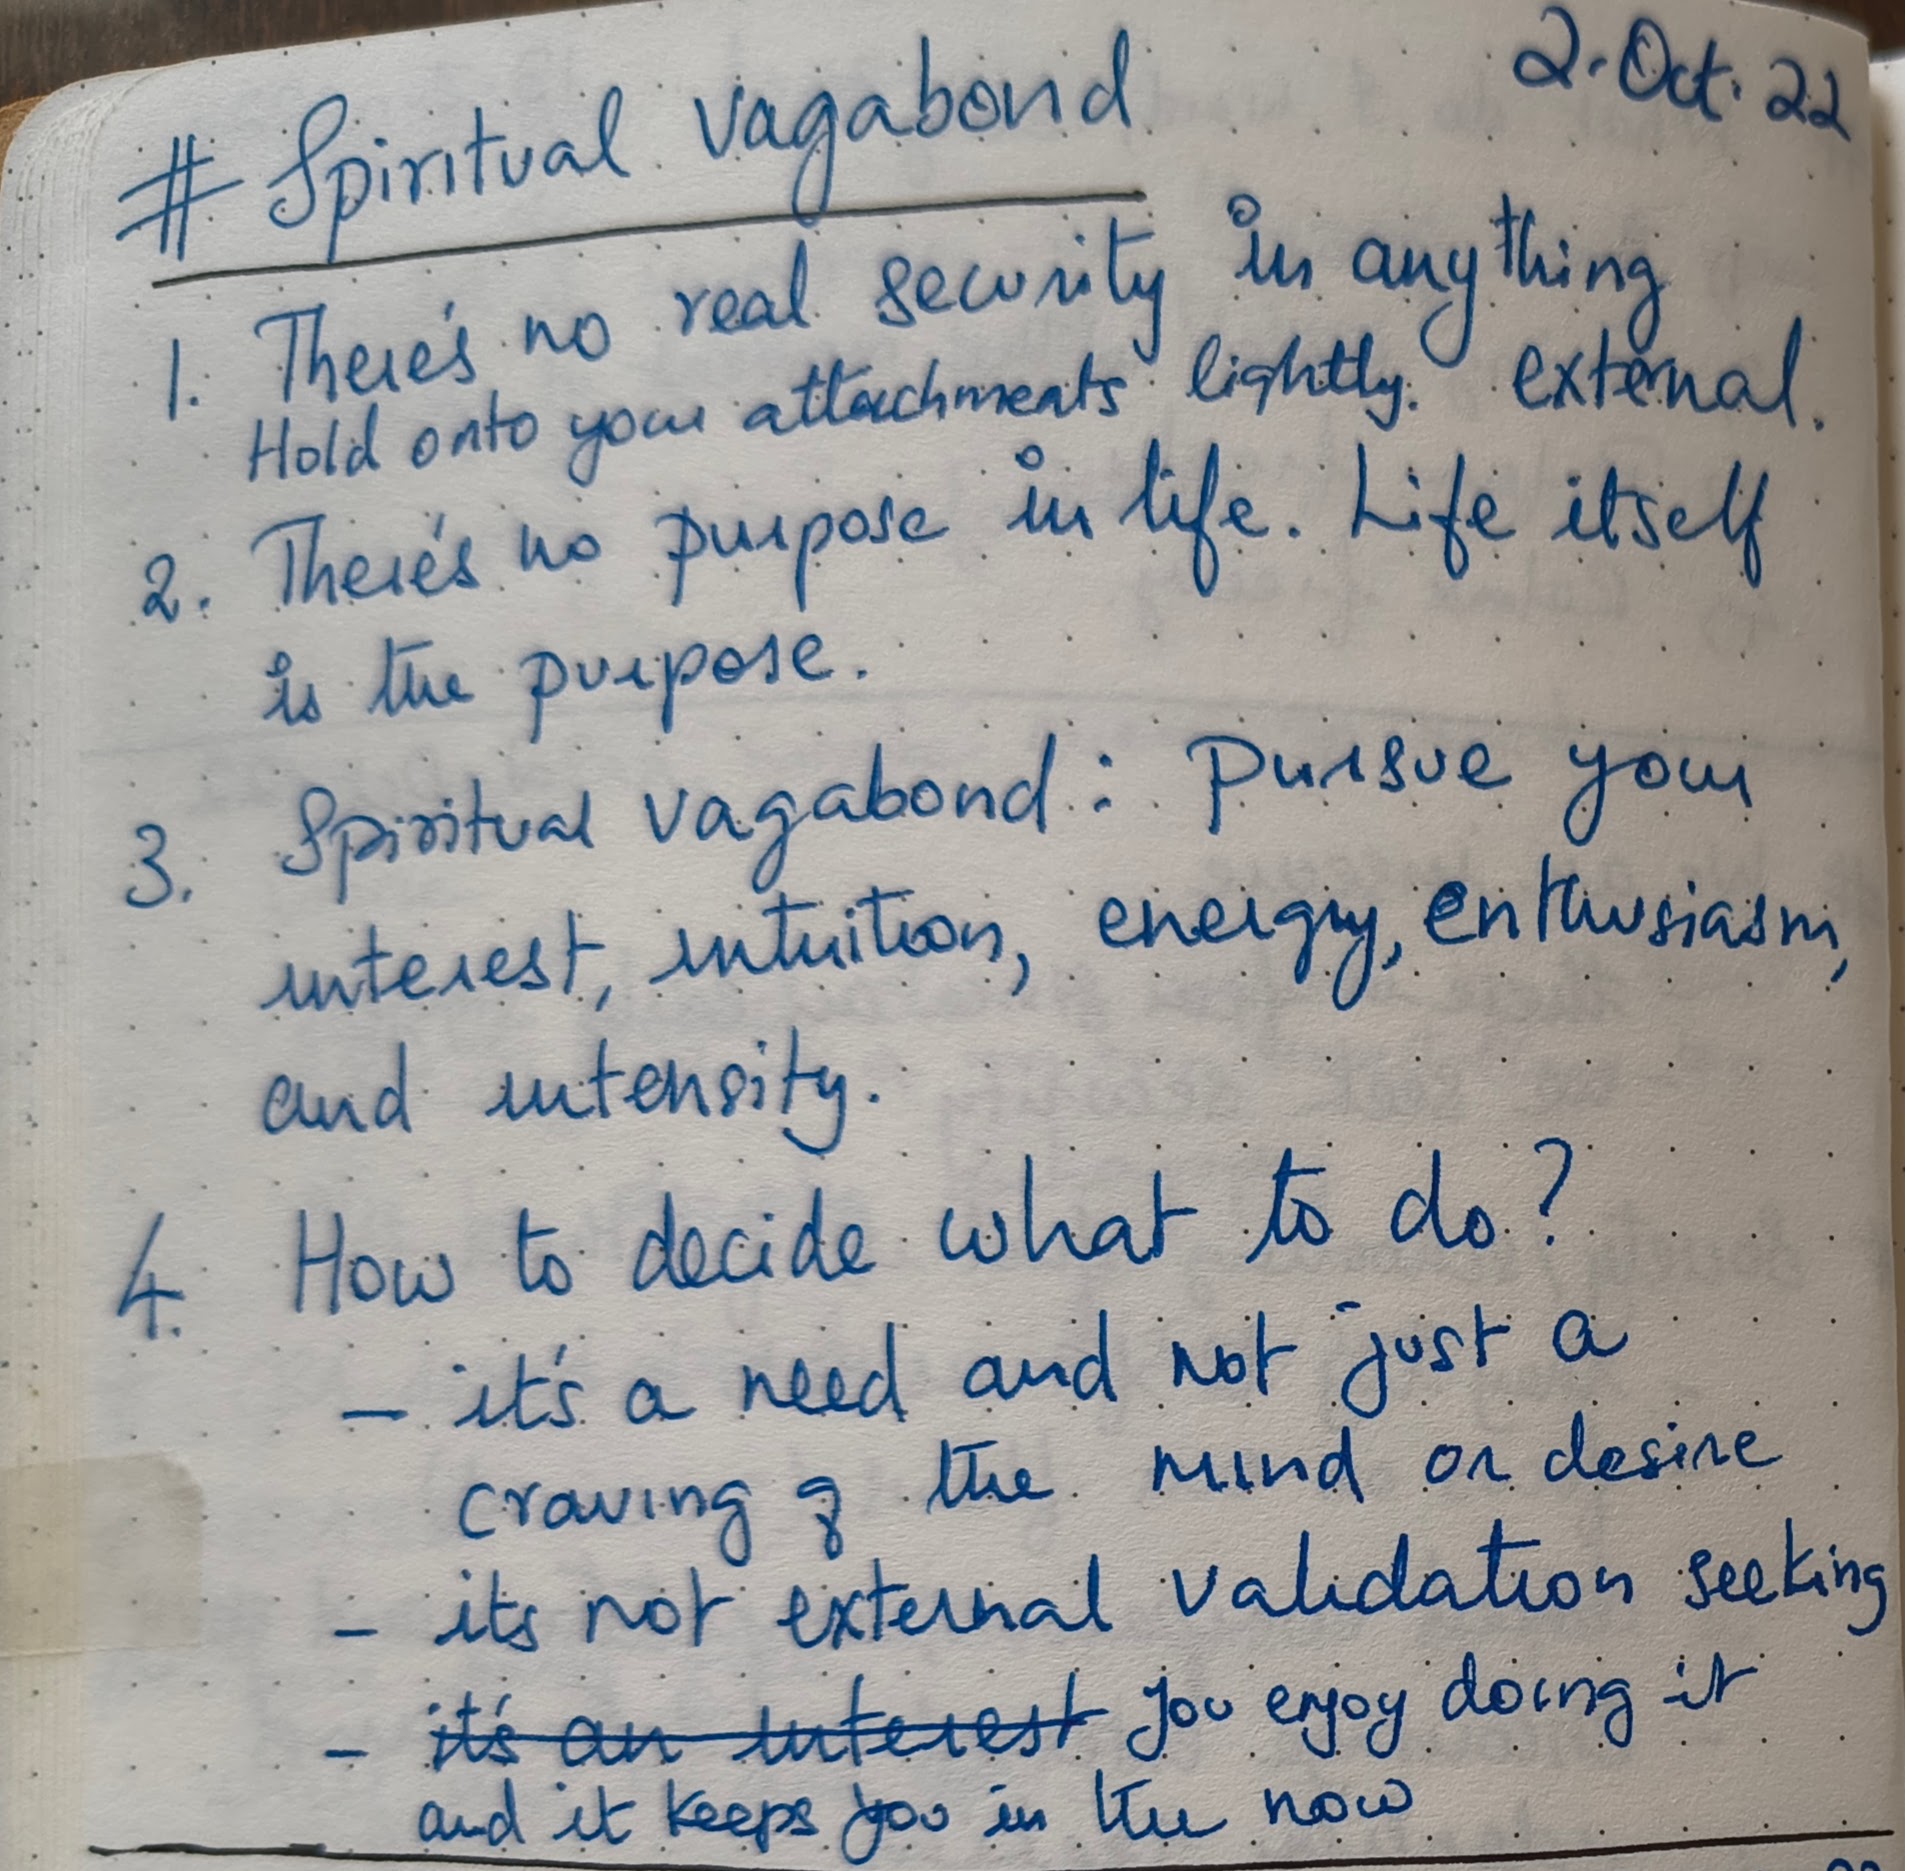 2. Oct. 22
# Spiritual vagabond
1. There's no real security in anything external.
Hold onto your attachments lightly.
2. There's no purpose in life. Life itself
is the purpose.
3. Spiritual vagabond: Pursue your
interest, intuition, energy, enthusiasm,
and intensity.
4. How to decide what to do?
- it's a need and not just a
craving of the mind or desire
- its not external validation seeking
- it's an interest you enjoy doing it
and it keeps you in the now